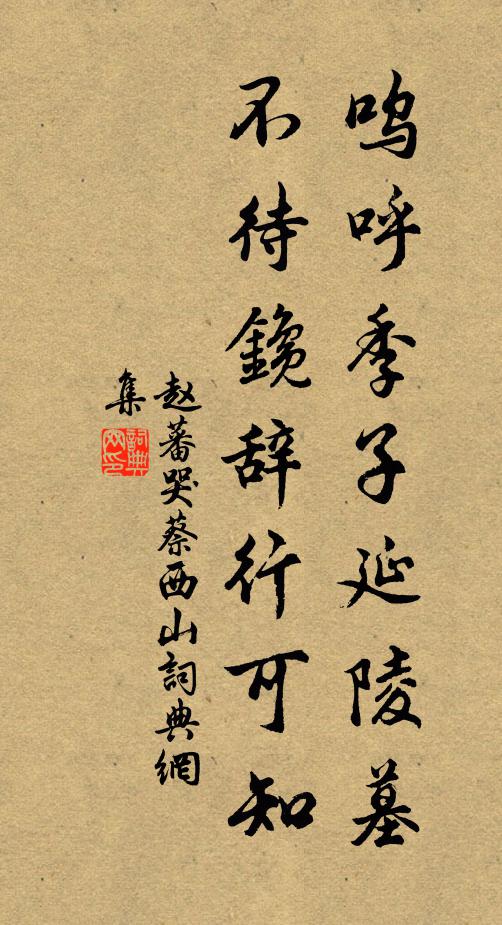 呜呼季子延陵墓
不待鑱辞行可知
赵蕃哭蔡西山詞典網
集
詞典网印